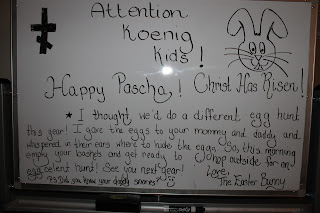 Attention
Koenig
Kids!
Happy Pascha! Christ Has Risen!
* I thought we'd do a different egg hunt
this year! I gave the eggs to your mommy and daddy and
whispered in their ears where to hide the eggs. So, this morning
empty your baskets and get ready to hop outside for an
egg celent hunt! See you next year!
Love,
P.S. Did you know your daddy snores?
The Easter Bunny